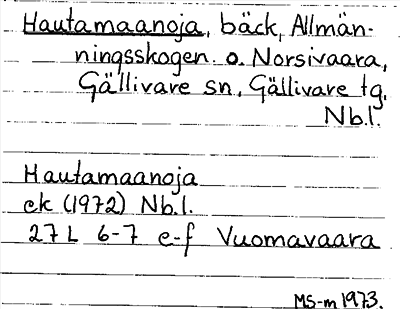 Hautamaanoja, bäck, Allmän-
ningsskogen o. Norsivaara,
Gällivare sn, Gällivare tg,
Nb.l.
Hautamaanoja
ek (1972) Nb.l.
27 L 6-7 e-f Vuomavaara
MS-m 1973.